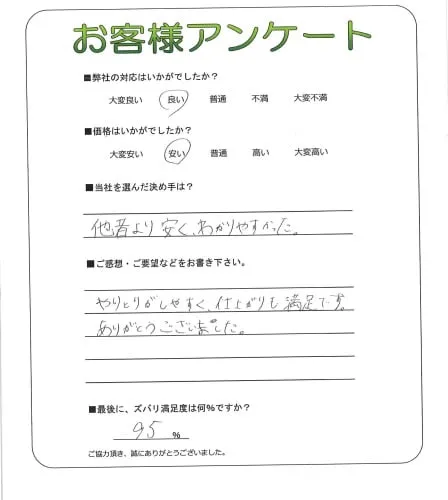 お客様アンケート
■弊社の対応はいかがでしたか？
大変良い 良い 普通 不満 大変不満
■価格はいかがでしたか？
大変安い 安い 普通 高い 大変高い
■当社を選んだ決め手は？
他者より安く、わかりやすかった。
■ご感想・ご要望などをお書き下さい。
やりとりがしやすく、仕上がりも満足です。
ありがとうございました。
■最後に、ズバリ満足度は何％ですか？
95 ％
ご協力頂き、誠にありがとうございました。